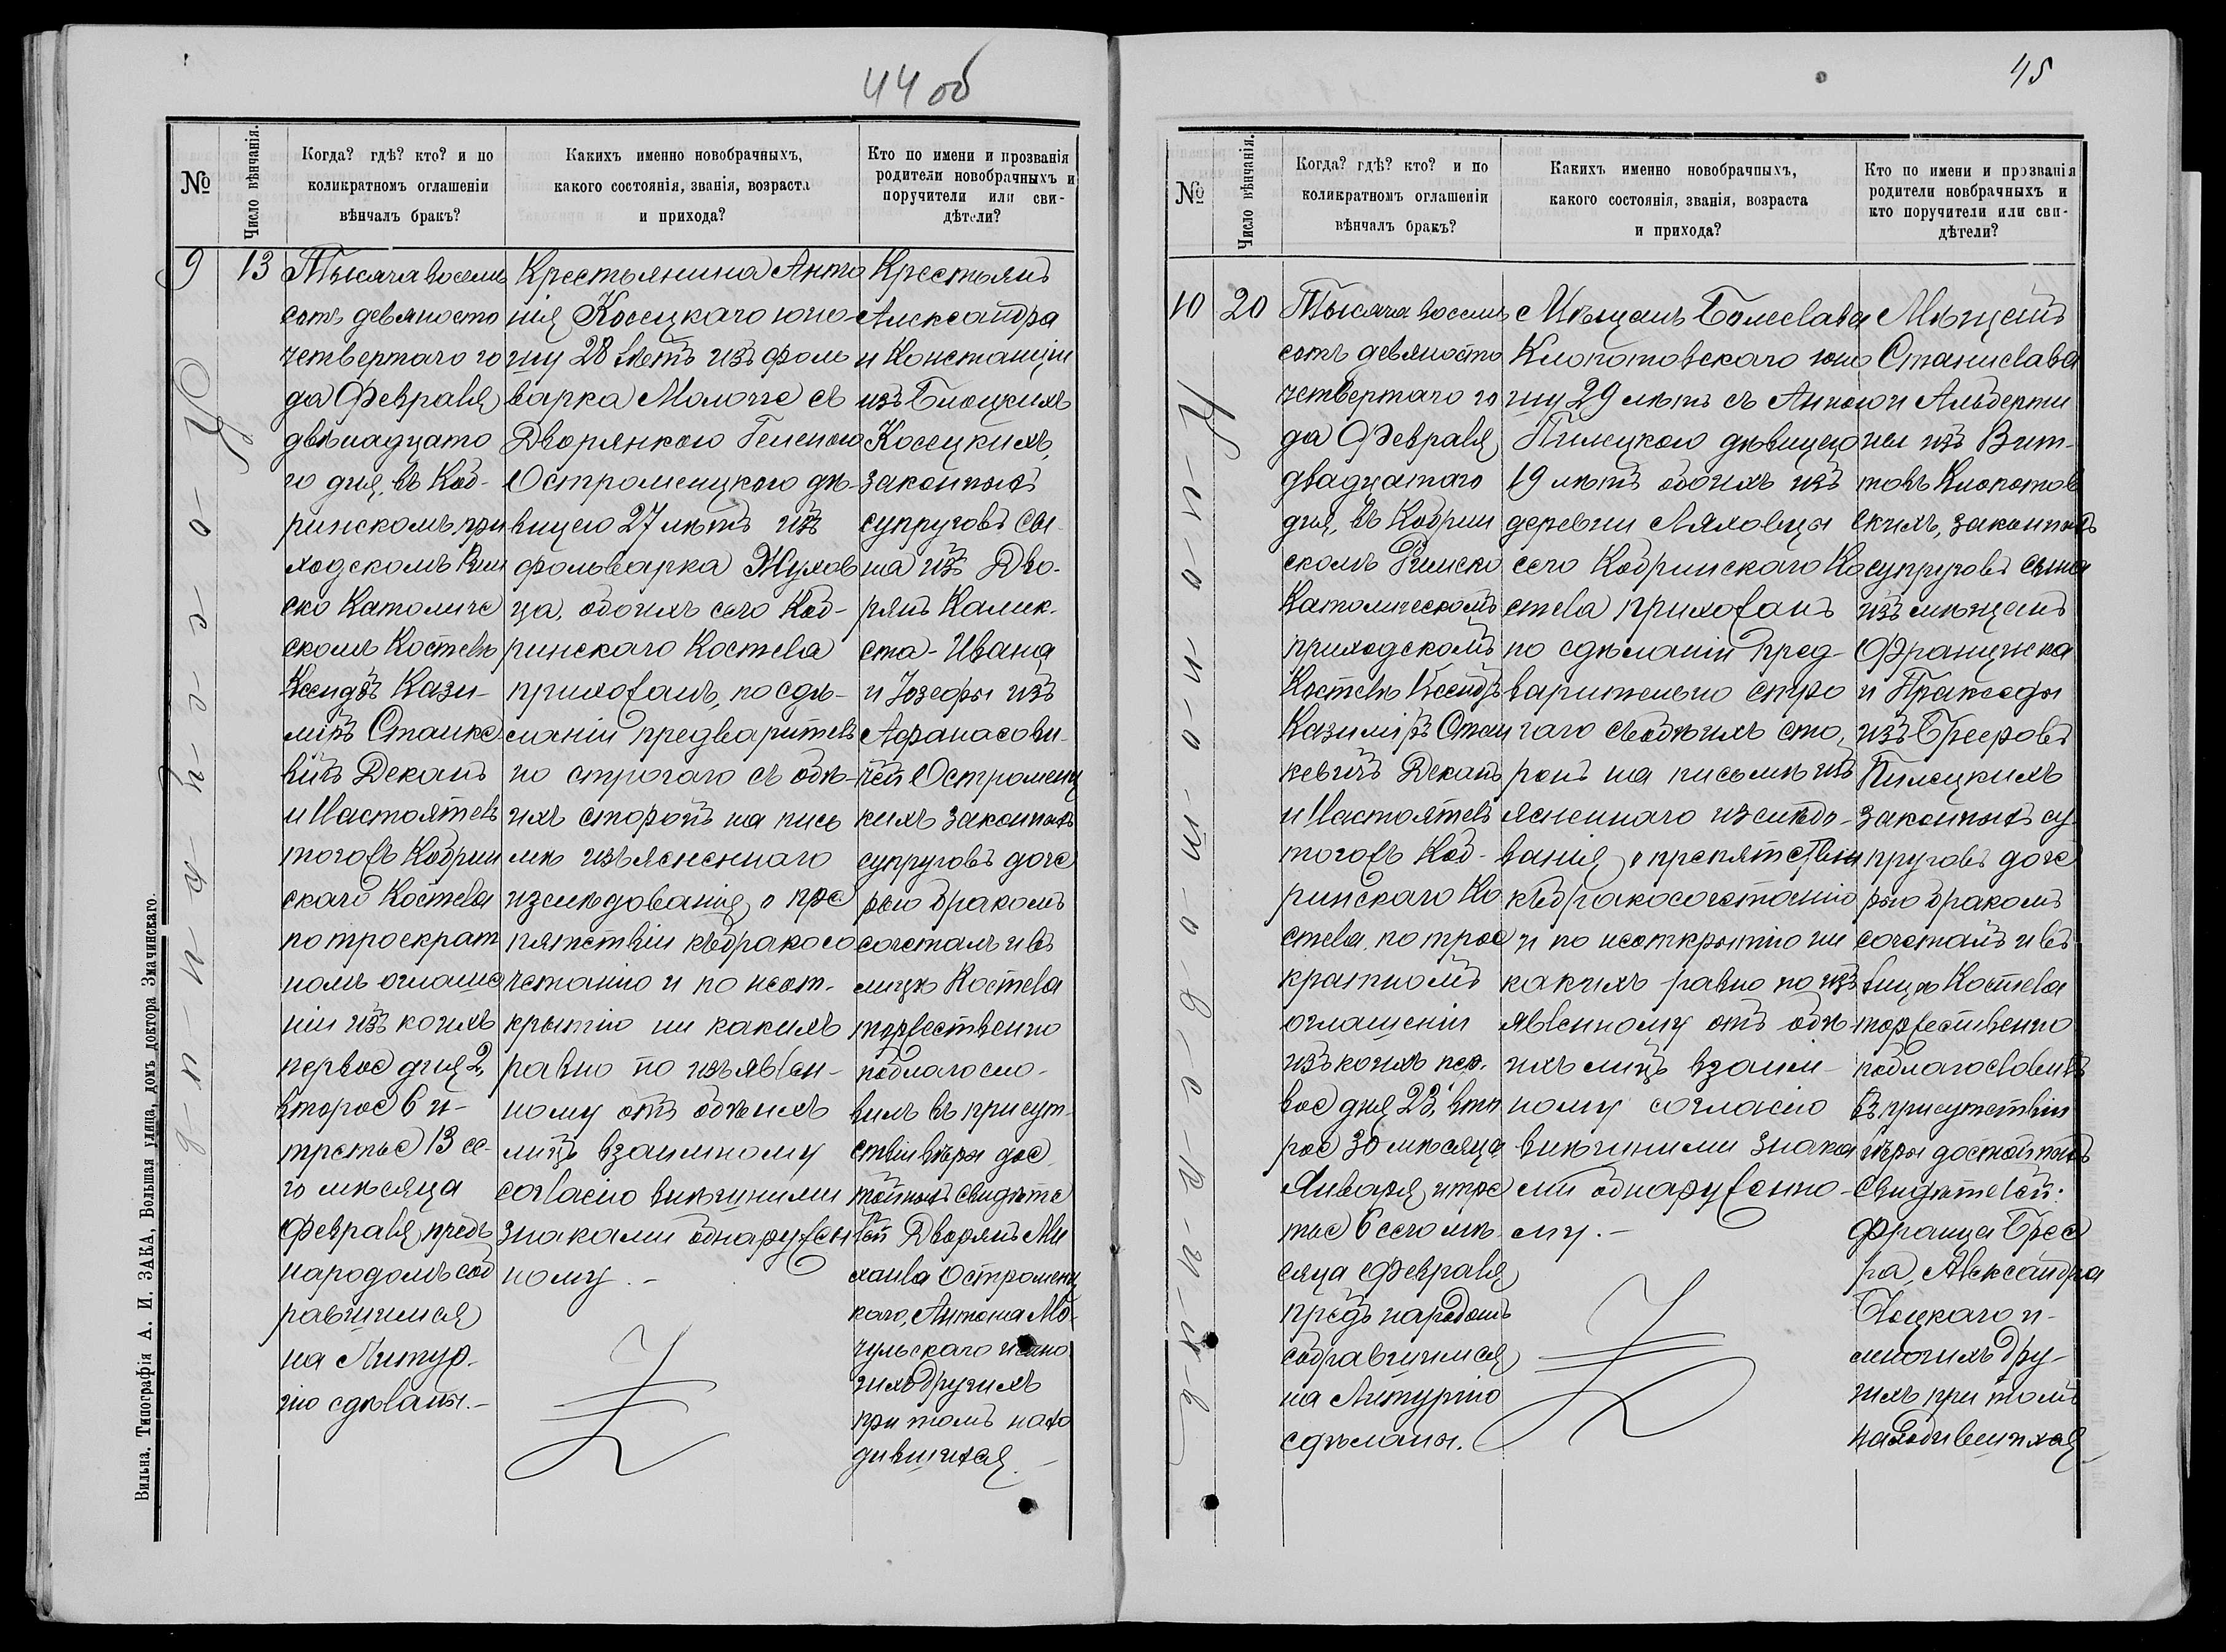 44 об
№
Число вѣнчанія.
Когда? гдѣ? кто? и по
коликратномъ оглашеніи
вѣнчалъ бракъ?
Какихъ именно новобрачныхъ,
какого состоянія, званія, возраста
и прихода?
Кто по имени и прозванія
родители новобрачныхъ и
поручители или сви-
дѣтели?
9
13
Тысяча восемь
сотъ девяносто
четвертаго го
да Февраля
двѣнадцато
го дня, въ Коб-
ринскомъ при
ходскомъ Рим
ско Католиче
скомъ Костелѣ
Ксендзъ Кази-
міръ Станке
вичъ Деканъ
и Настоятель
тогожъ Кобрин
скаго Костела
по троекрат
номъ оглаше
ніи изъ коихъ
первое дня 2,
второе 6 и-
третье 13 се-
го мѣсяца
Февраля, предъ
народомъ соб
равшимся
на Литур-
гію сдѣланы.-
Крестьянина Анто
нія Косецкаго юно-
шу 28 лѣтъ изъ фоль
варка Молочне съ
Дворянкою Геленою
Остроменцкою дѣ-
вицею 27 лѣтъ изъ
фольварка Жухов
ца, обоихъ сего Коб-
ринскаго Костела
прихожанъ, по сдѣ-
ланіи предваритель
но строгаго съ обѣ-
ихъ сторонъ на пись
мѣ изъясненнаго
изслѣдованія о пре
пятствіи къ бракосо
четанію и по неот-
крытію ни какихъ
равно по изъявлен-
ному отъ обѣихъ
лицъ взаимному
согласію внѣшними
знаками обнаружен
ному.-
Крестьянъ
Александра
и Констанціи
изъ Блоцкихъ
Косецкихъ,
законныхъ
супруговъ сы-
на изъ Дво-
рянъ Каликс-
та-Ивана
и Іозефы изъ
Афанасови-
чей Остроменц
кихъ законныхъ
супруговъ доче
рью бракомъ
сочеталъ и въ
лицѣ Костела
торжественно
поблагосло-
вилъ въ присут-
ствіи вѣры дос
тойныхъ свидѣте
лей Дворянъ Ми
хаила Остроменц
каго, Антона Мо-
чульскаго и мно
гихъ другихъ
при томъ нахо
дившихся.-
Вильна. Типографія А. И. ЗАКА, Большая улица, домъ доктора Змачинскаго.
45
№
Число вѣнчанія.
Когда? гдѣ? кто? и по
коликратномъ оглашеніи
вѣнчалъ бракъ?
Какихъ именно новобрачныхъ,
какого состоянія, званія, возраста
и прихода?
Кто по имени и прозванія
родители новбрачныхъ и
кто поручители или сви-
дѣтели?
10
20
Тысяча восемь
сотъ девяносто
четвертаго го
да Февраля
двадцатаго
дня, въ Кобрин
скомъ Римско
Католическомъ
приходскомъ
Костелѣ Ксендзъ
Казиміръ Стан
кевичъ Деканъ
и Настоятель
тогожъ Коб-
ринскаго Ко
стела, по трое
кратномъ
оглашеніи
изъ коихъ пер-
вое дня 23, вто
рое 30 мѣсяца
Января, и тре
тье 6 сего мѣ
сяца Февраля
предъ народомъ
собравшимся
на Литургію
сдѣланы.
Мѣщанъ Болеслава
Клопотовскаго юно
шу 29 лѣтъ съ Анною
Пилецкою дѣвицею
19 лѣтъ обоихъ изъ
деревни Ляховцы
сего Кобринскаго Ко
стела прихожанъ
по сдѣланіи пред-
варительно стро
гаго съ обѣихъ сто-
ронъ на письмѣ изъ
ясненнаго изслѣдо-
ванія о препятствіи
къ бракосочетанію
и по неоткрытію ни
какихъ равно по изъ
явленному отъ обѣ-
ихъ лицъ взаим-
ному согласію
внѣшними знака
ми обнаруженно-
му.-
Мѣщанъ
Станислава
и Альберти
ны изъ Вит-
товъ Клопотов
скихъ, законныхъ
супруговъ сына
изъ мѣщанъ
Францишка
и Пракседы
изъ Брееровъ
Пилецкихъ
законныхъ су
пруговъ доче
рью бракомъ
сочеталъ и въ
лицѣ Костела
торжественно
поблагословилъ
въ присутствіи
вѣры достойныхъ
свидѣтелей:
Франца Брее
ра, Александра
Блоцкаго и-
многихъ дру-
гихъ при томъ
находившихся